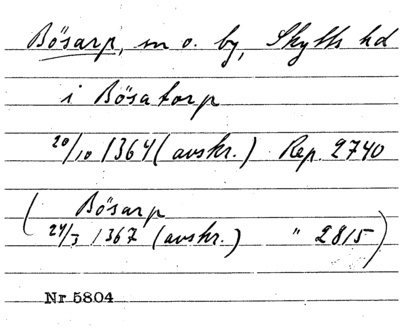 Bösarp, sn o. by, Skytts hd
i Bösatorp
20/10 1364 (avskr.) Rep. 2740
( Bösarp
24/3 1367 (avskr.) " 2815 )
Nr 5804